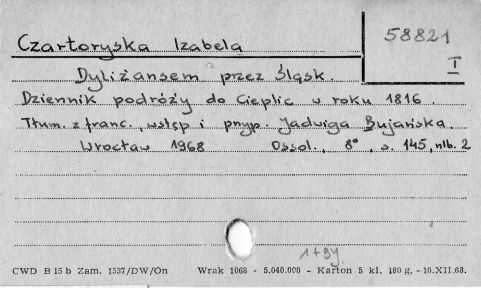 58821
I
Czartoryska Izabela
Dyliżansem przez Śląsk.
Dziennik podróży do Cieplic w roku 1816.
Tłum. z franc., wstęp i przyp. Jadwiga Bujańska.
Wrocław 1968 Ossol., 8°, s. 145, nlb. 2
1+9y.
CWD B 15 b Zam. 1537/DW/On Wrak 1068 - 5.040.000 - Karton 5 kl. 180 g. - 10.XII.68.